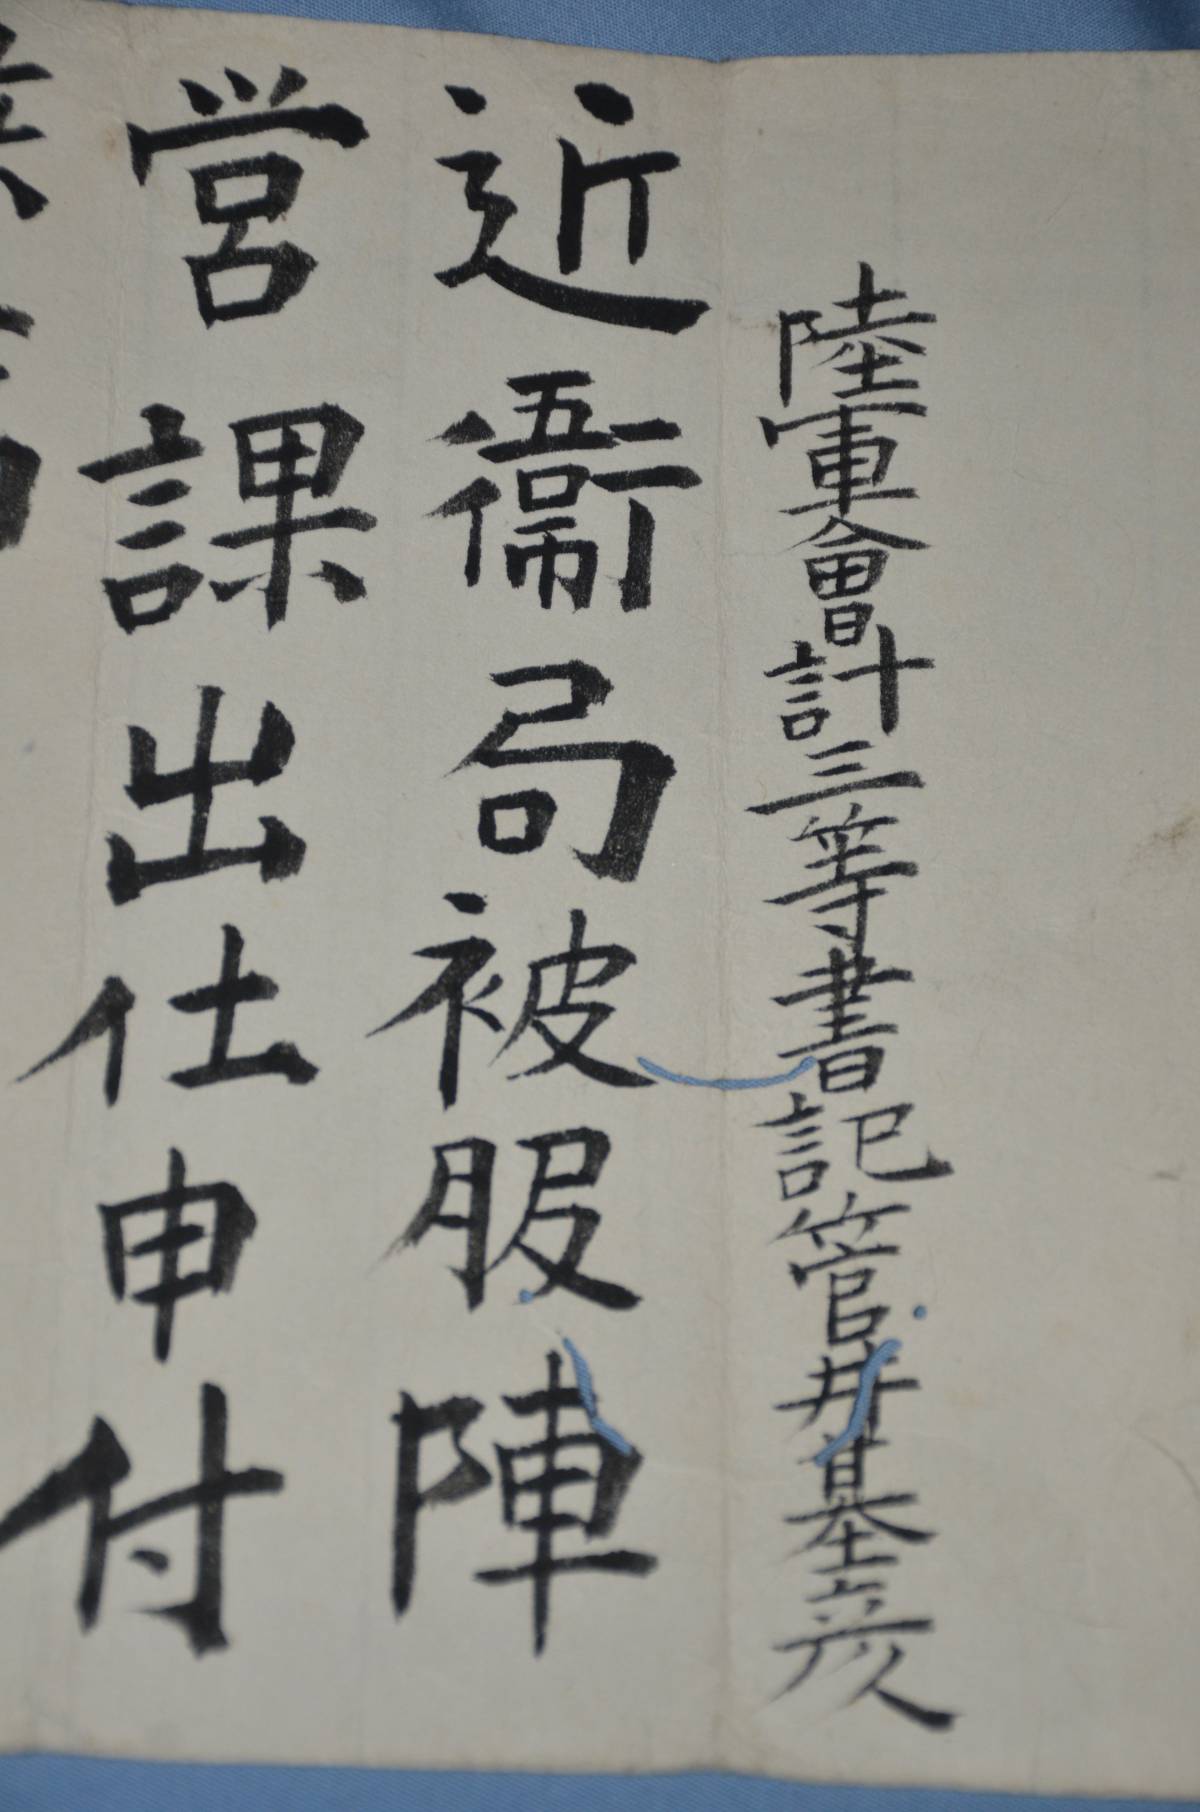 陸軍會計三等書記管井基彦
近衞局被服陣
営課出仕申付